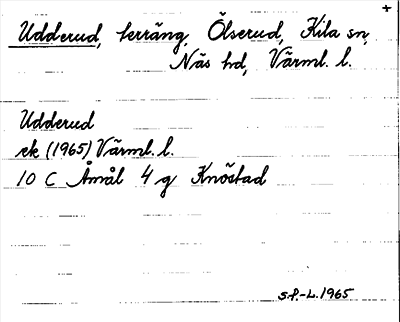 +
Udderud, terräng, Ölserud, Kila sn,
Näs hd, Värml. l.
Udderud
ek (1965) Värml. l.
10 C Åmål 4 g Knöstad
S.P.-L. 1965